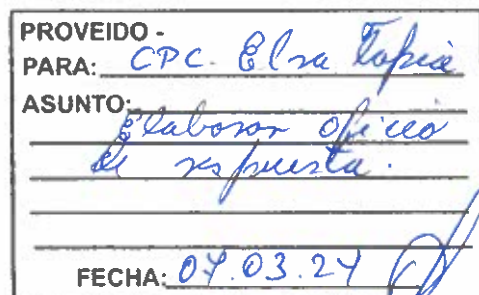 PROVEIDO -
PARA: CPC. Elsa Tapia
ASUNTO:
Elaborar oficio
de respuesta.
FECHA: 07.03.24